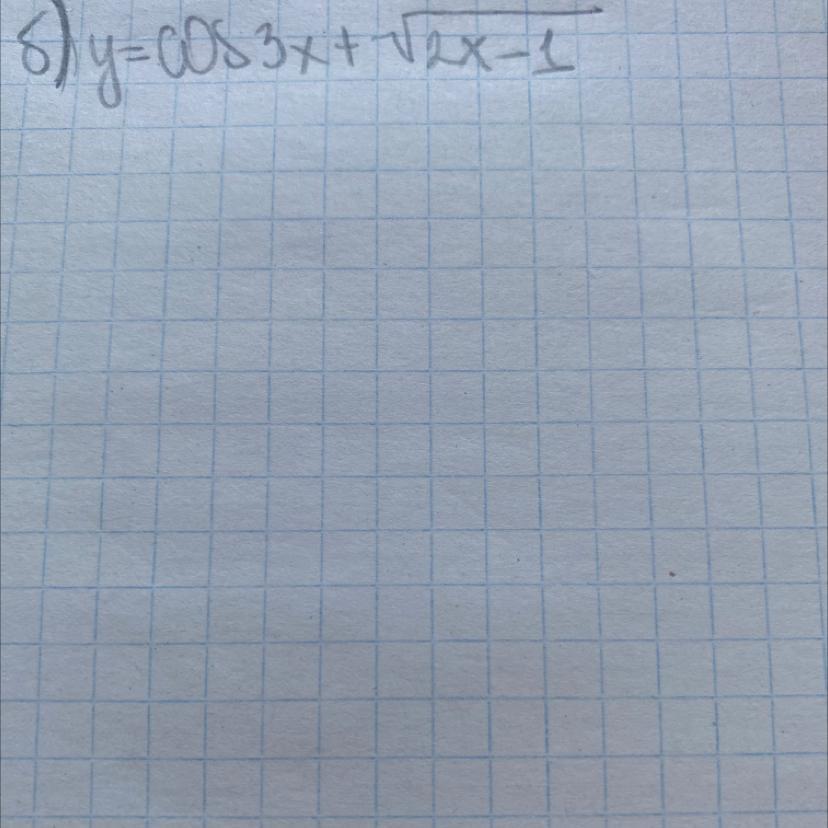 б) y=cos3x+√2x-1